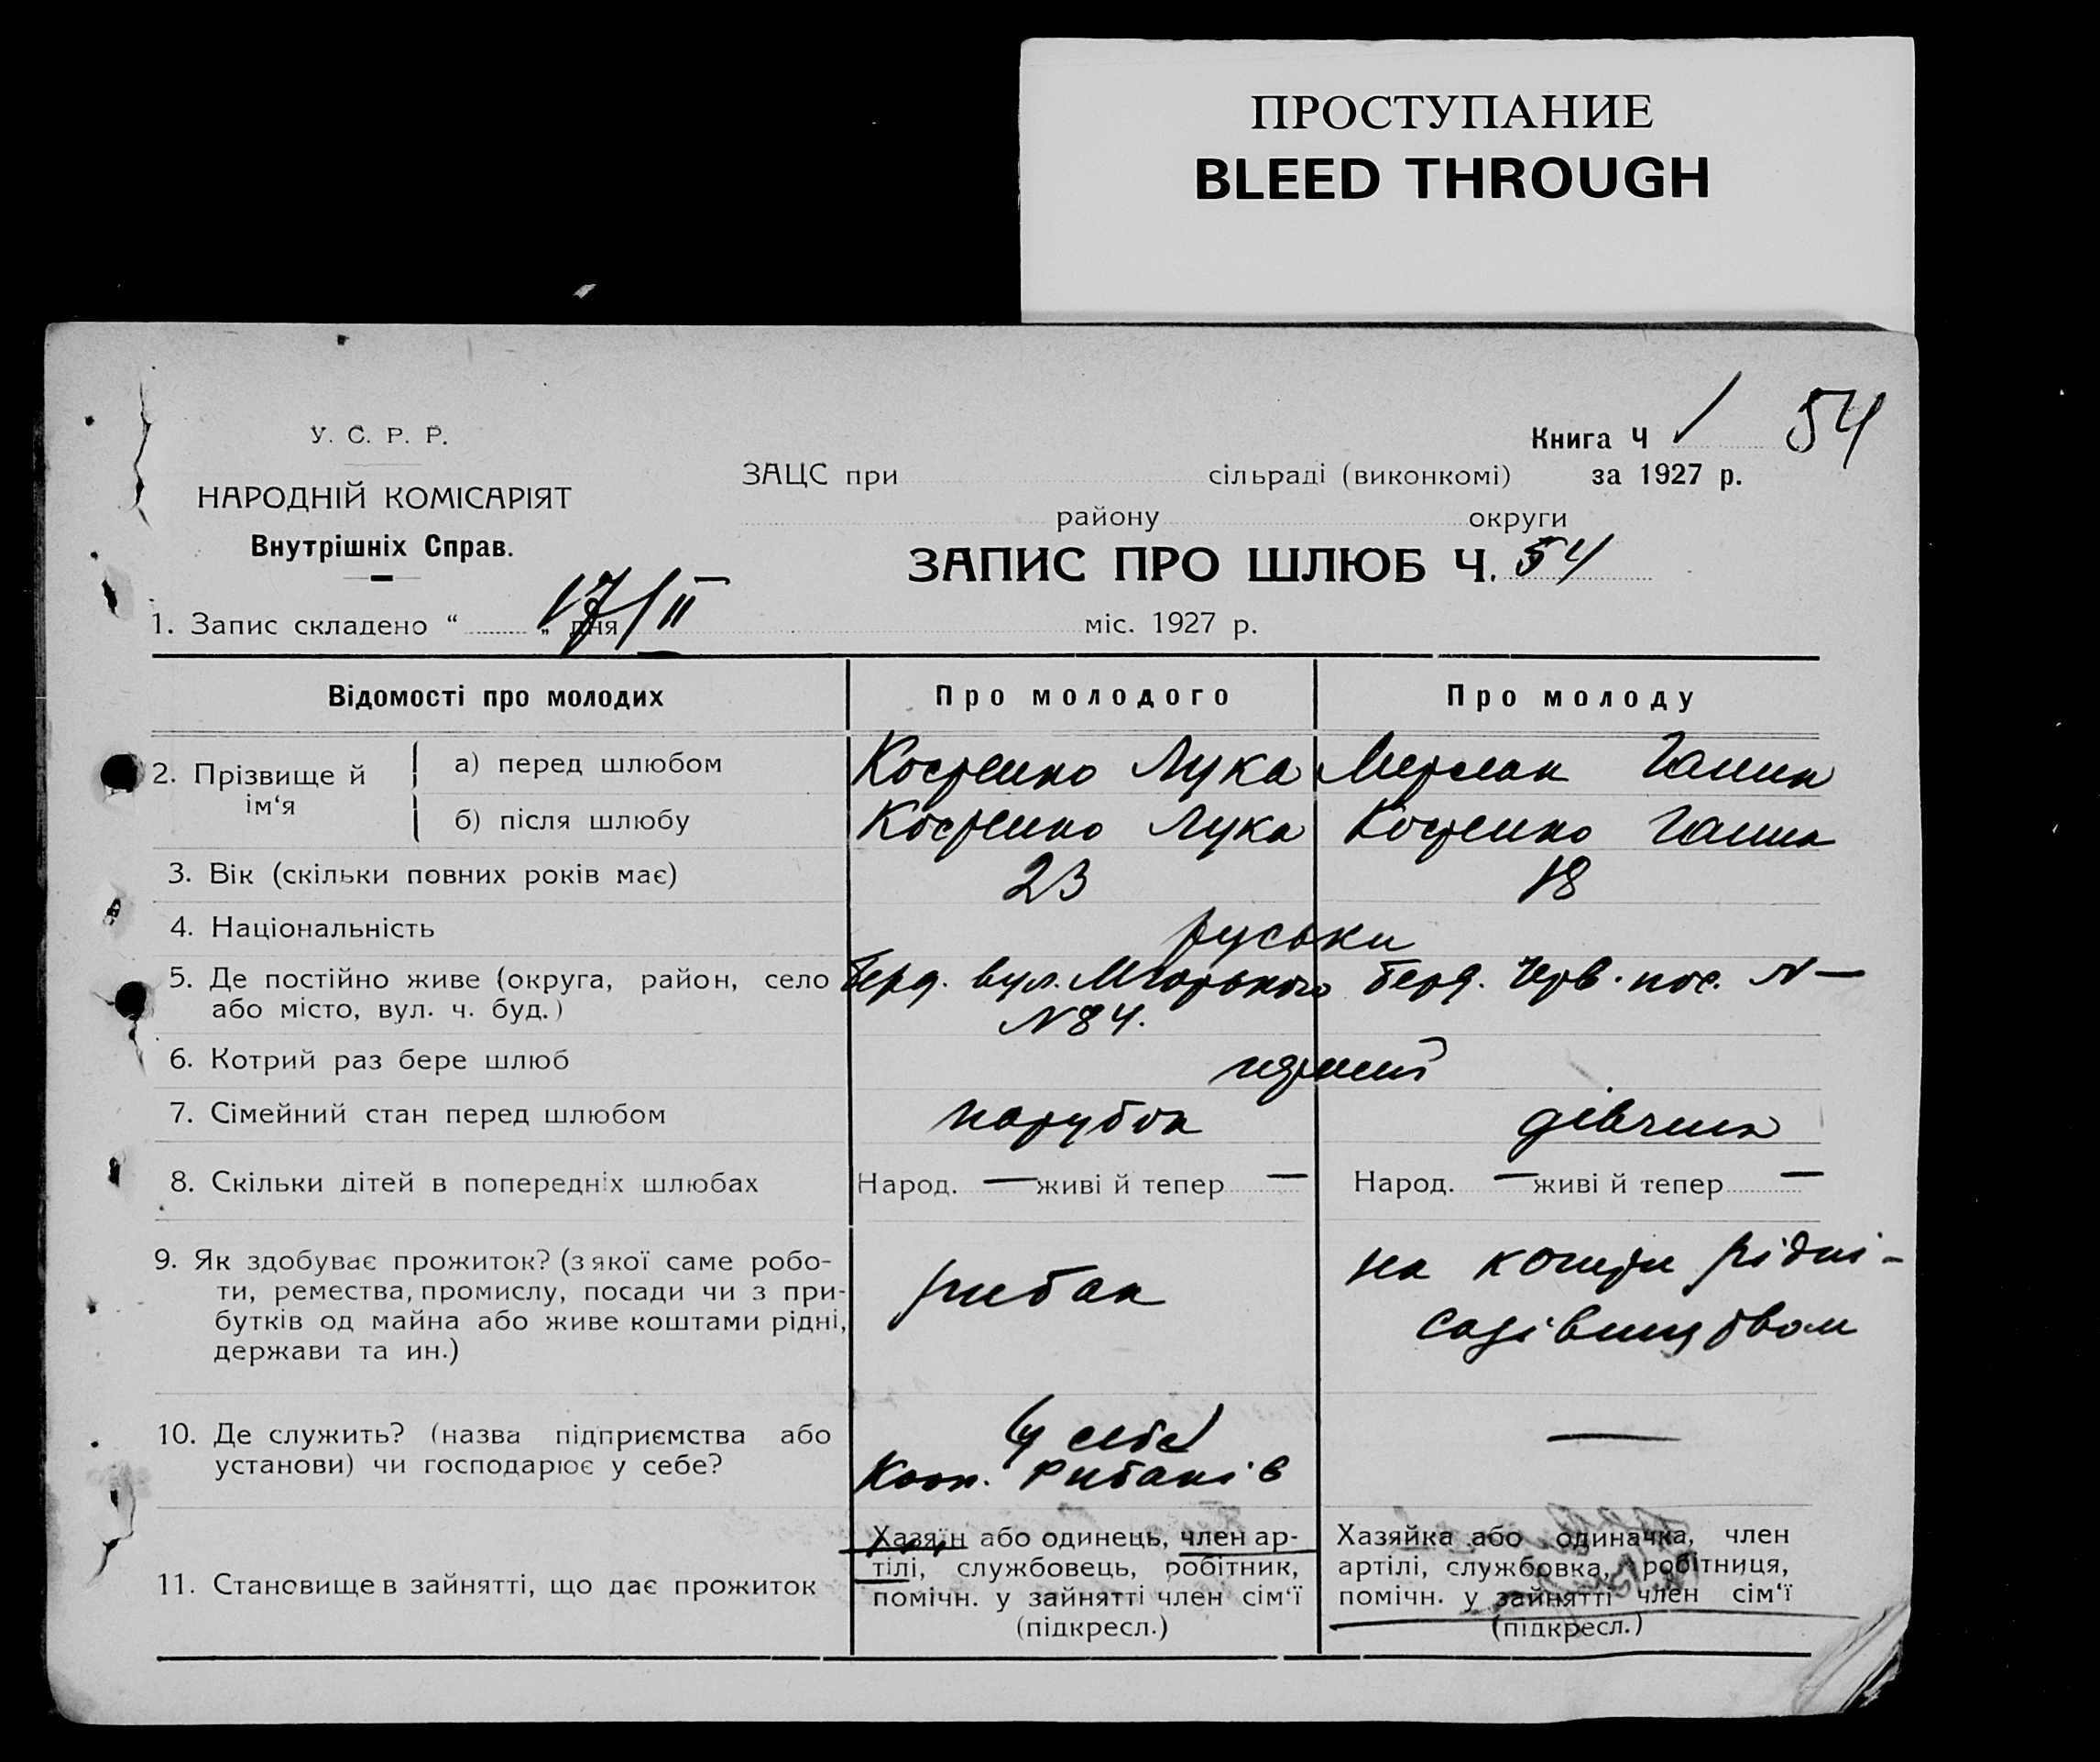 ПРОСТУПАНИЕ
BLEED THROUGH
54
Книга Ч 1
У. С. Р. Р.
ЗАЦС при сільраді (виконкомі) за 1927 р.
НАРОДНІЙ КОМІСАРІЯТ
району округи
Внутрішніх Справ.
ЗАПИС ПРО ШЛЮБ Ч. 54
1. Запис складено “ „ дня 17/II міс. 1927 р.
Відомості про молодих Про молодого Про молоду
2. Прізвище й ім‘я а) перед шлюбом Костенко Лука Ганна
б) після шлюбу Костенко Лука Костенко Ганна
3. Вік (скільки повних років має) 23 18
4. Національність руськи
5. Де постійно живе (округа, район, село Берд. вул. М Горького Берд. Черв. пос. N —
або місто, вул. ч. буд.) N 84.
6. Котрий раз бере шлюб перший
7. Сімейний стан перед шлюбом парубок дівчина
8. Скільки дітей в попередніх шлюбах Народ. — живі й тепер — Народ. — живі й тепер —
9. Як здобуває прожиток? (з якої саме робо-
ти, ремества, промислу, посади чи з при-
бутків од майна або живе коштами рідні,
держави та ин.)
рибак
на кошти рідні -
садівництвом
10. Де служить? (назва підприємства або
установи) чи господарює у себе?
(у себе)
Кооп. Рибаків
—
11. Становище в зайнятті, що дає прожиток
Хазяїн або одинець, член ар-
тілі, службовець, робітник,
помічн. у зайнятті член сім‘ї
(підкресл.)
Хазяйка або одиначка, член
артілі, службовка, робітниця,
помічн. у зайнятті член сім‘ї
(підкресл.)